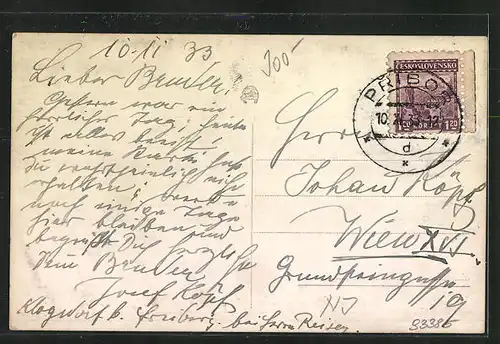 10. II 33
Lieber Bruder!
Gestern war ein
herrlicher Tag; heute
ist alles
meine Karte hast
Du wahrscheinlich nicht
erhalten; werde
noch einige Tage
hier bleiben und
begrüßt Dich herzlichst
Dein Bruder
Josef Kopf
Klogsdorf b. Freiberg, bei Herrn
300
ČESKOSLOVENSKO
1.20
PŘÍBOR
10.
d
Herrn
Johan Kopf
Wien XVI
Grundsteingasse
19
93386